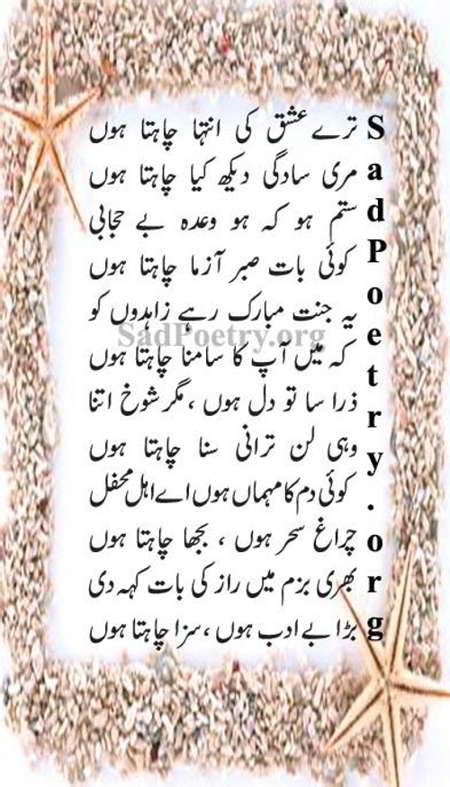 ترے عشق کی انتہا چاہتا ہوں
مری سادگی دیکھ کیا چاہتا ہوں
ستم ہو کہ ہو وعدہ بے حجابی
کوئی بات صبر آزما چاہتا ہوں
یہ جنت مبارک رہے زاہدوں کو
SadPoetry.org
کہ میں آپ کا سامنا چاہتا ہوں
ذرا سا تو دل ہوں ، مگر شوخ اتنا
وہی لن ترانی سنا چاہتا ہوں
کوئی دم کا مہماں ہوں اے اہل محفل
چراغ سحر ہوں ، بجھا چاہتا ہوں
بھری بزم میں راز کی بات کہہ دی
بڑا بے ادب ہوں ، سزا چاہتا ہوں
SadPoetry.org